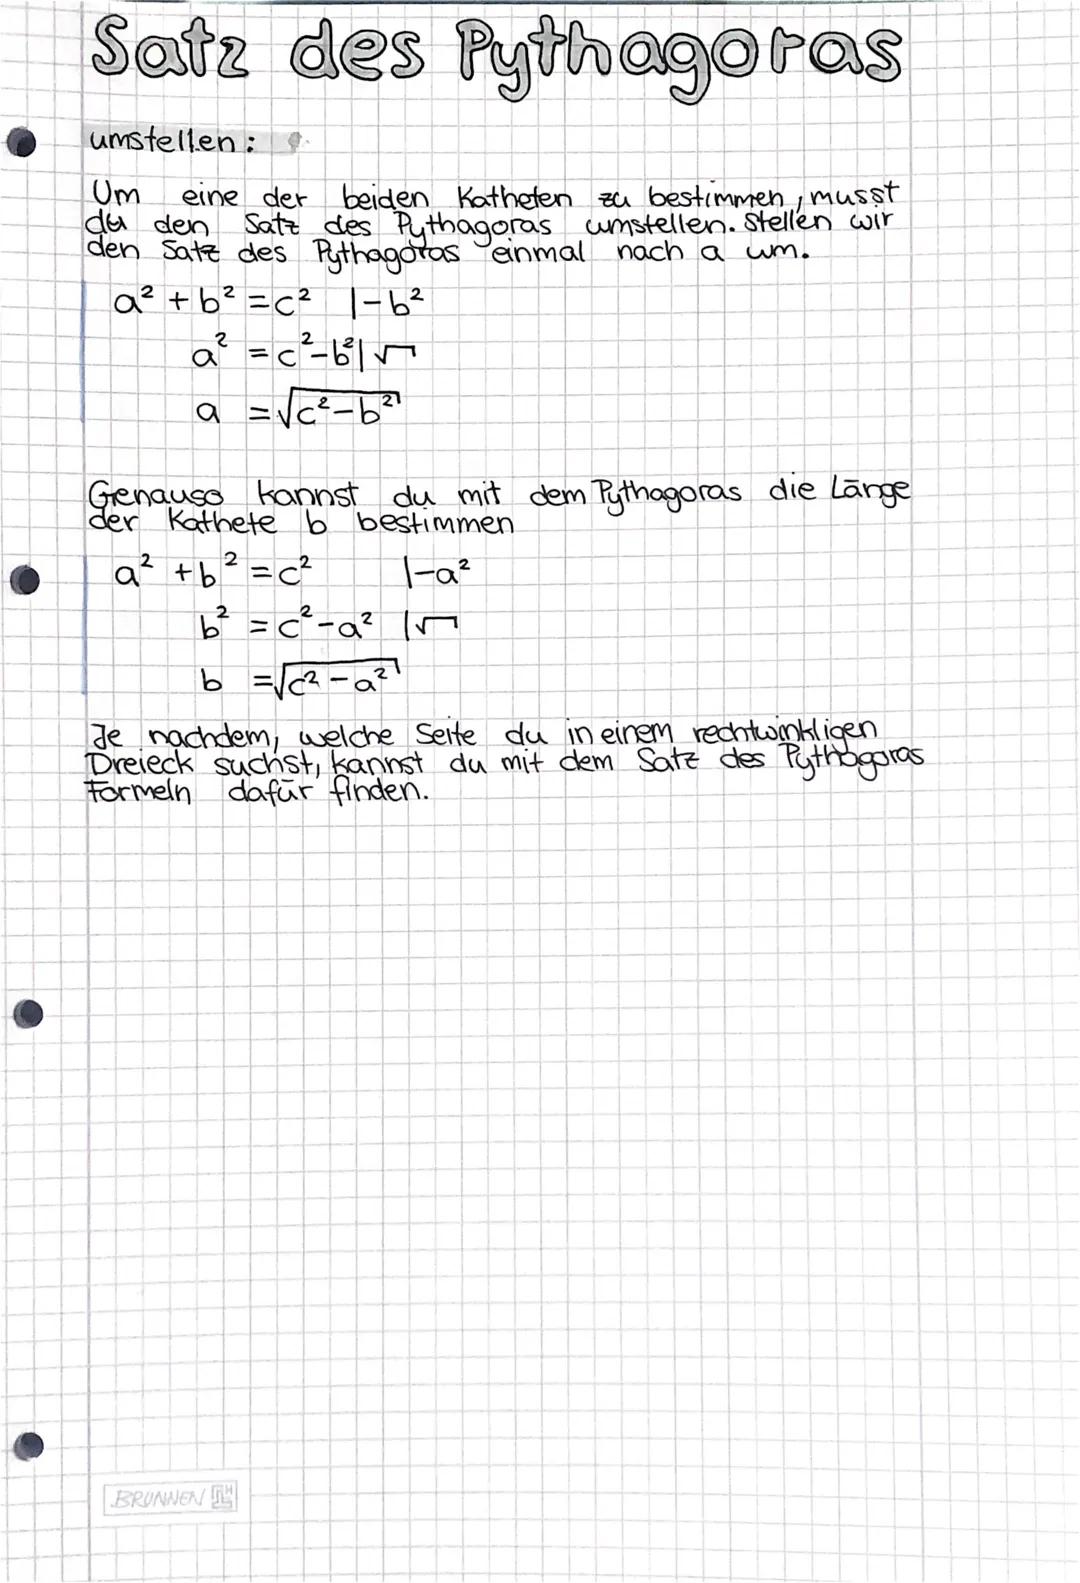 Satz des Pythagoras
umstellen:
Um eine der beiden Katheten zu bestimmen, musst
du den Satz des Pythagoras umstellen. Stellen wir
den Satz des Pythagoras einmal nach a um.
a² + b² = c² |-b²
a² = c²-b²|√
a = √c²-b²
Genauso kannst du mit dem Pythagoras die Länge
der Kathete b bestimmen
a² + b² = c² |-a²
b² = c²-a² |√
b = √c²-a²
Je nachdem, welche Seite du in einem rechtwinkligen
Dreieck suchst, kannst du mit dem Satz des Pythagoras
Formeln dafür finden.
BRUNNEN